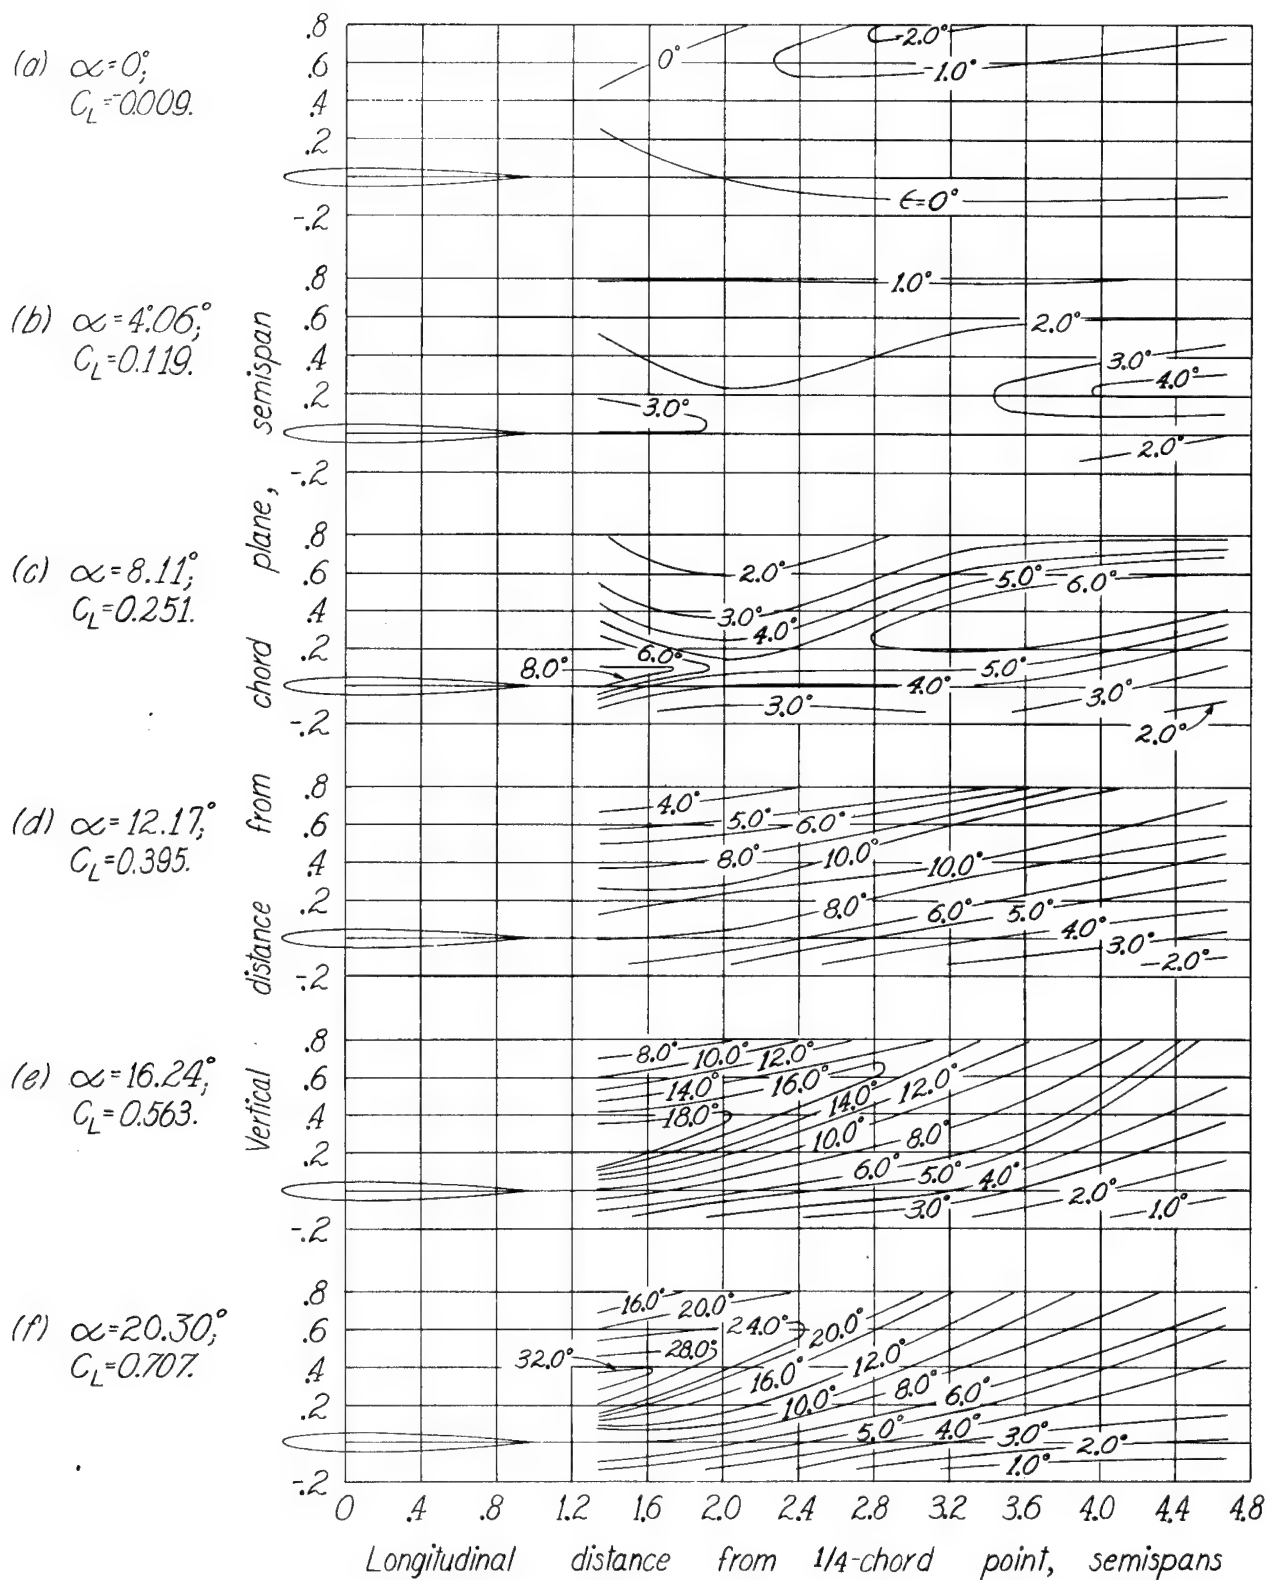 (a) α=0°;
C_L=-0.009.
.8
.6
.4
.2
-.2
0°
-2.0°
-1.0°
ϵ=0°
(b) α=4.06;°
C_L=0.119.
.8
.6
.4
.2
-.2
1.0°
2.0°
3.0°
4.0°
3.0°
2.0°
(c) α=8.11;°
C_L=0.251.
.8
.6
.4
.2
-.2
2.0°
5.0°
6.0°
3.0°
4.0°
6.0°
8.0°
5.0°
4.0°
3.0°
3.0°
2.0°
(d) α=12.17;°
C_L=0.395.
.8
.6
.4
.2
-.2
4.0°
5.0°
6.0°
8.0°
10.0°
10.0°
8.0°
6.0°
5.0°
4.0°
3.0°
2.0°
(e) α=16.24;°
C_L=0.563.
.8
.6
.4
.2
-.2
8.0°
10.0°
12.0°
14.0°
16.0°
14.0°
12.0°
18.0°
10.0°
8.0°
6.0°
5.0°
4.0°
3.0°
2.0°
1.0°
(f) α=20.30;°
C_L=0.707.
.8
.6
.4
.2
-.2
16.0°
20.0°
24.0°
20.0°
28.0°
32.0°
16.0°
12.0°
10.0°
8.0°
6.0°
5.0°
4.0°
3.0°
2.0°
1.0°
Vertical distance from chord plane, semispan
0 .4 .8 1.2 1.6 2.0 2.4 2.8 3.2 3.6 4.0 4.4 4.8
Longitudinal distance from 1/4-chord point, semispans